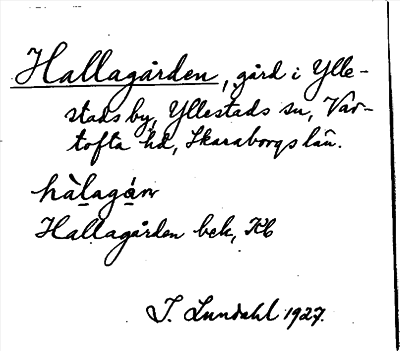 Hallagården, gård i Ylle-
stads by, Yllestads sn, Var-
tofta hd, Skaraborgs län.
Hallagården bek, Kb
I. Lundahl 1927.